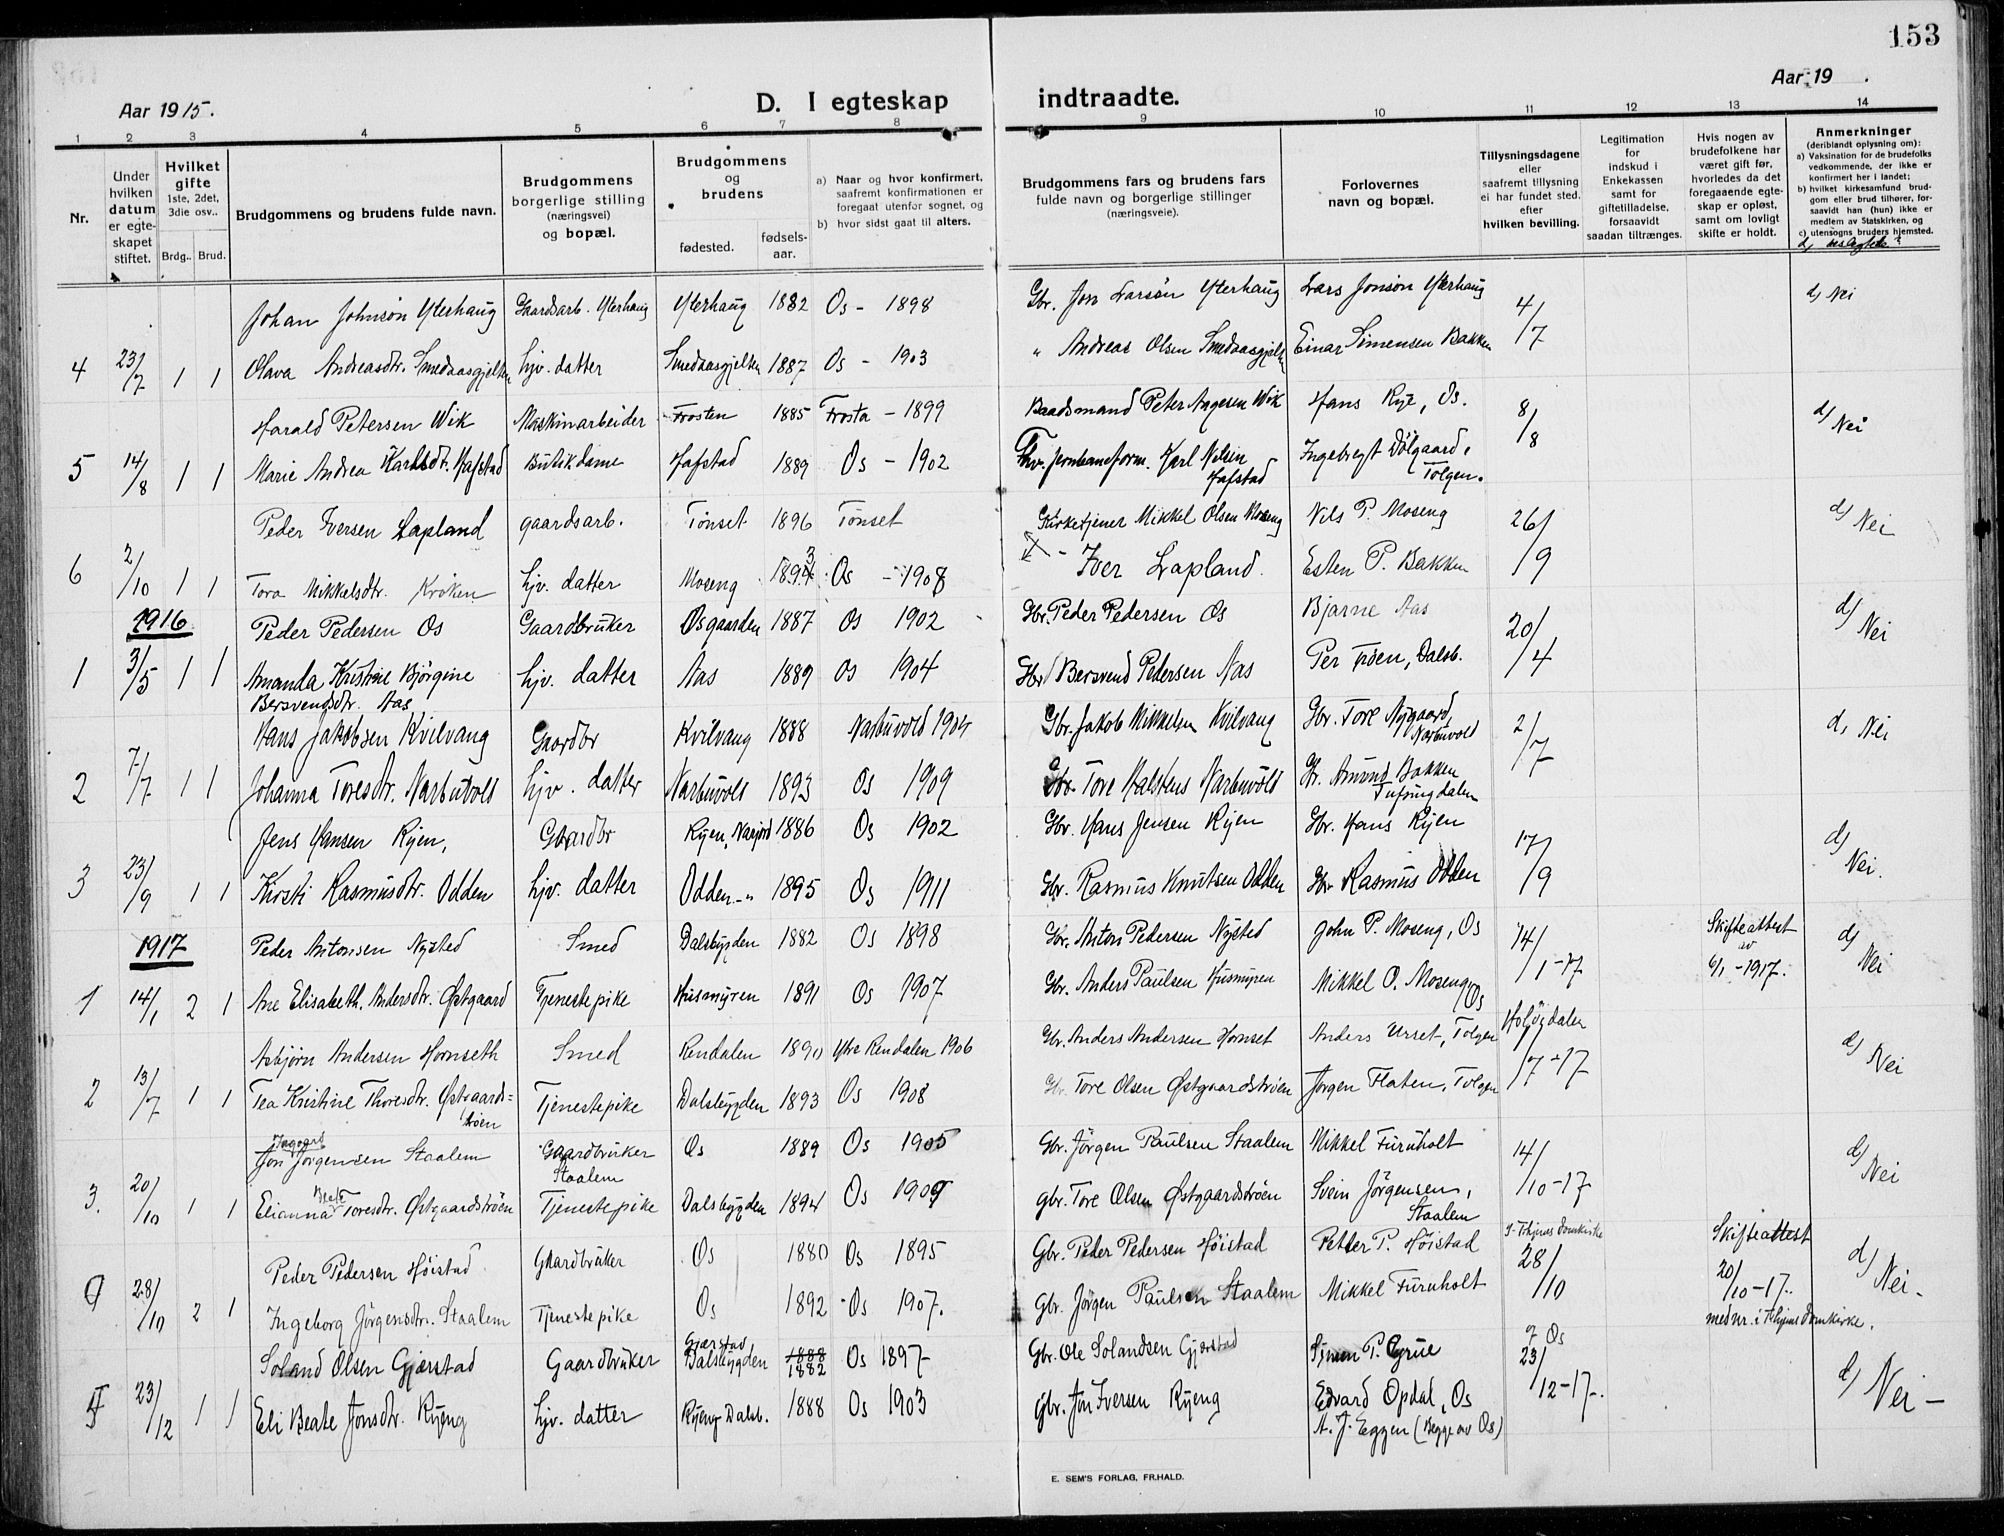 153
Aar 1915.
D. I egteskap indtraadte.
Aar 19 .
1 2 3 4 5 6 7 8 9 10 11 12 13 14
Nr.
Under hvilken datum er egteskapet stiftet.
Hvilket gifte 1ste, 2det, 3die osv..
Brdg.. Brud.
Brudgommens og brudens fulde navn.
Brudgommens borgerlige stilling (næringsvei) og bopæl.
Brudgommens og brudens
fødested. fødselsaar.
a) Naar og hvor konfirmert, saafremt konfirmationen er foregaat utenfor sognet, og
b) hvor sidst gaat til alters.
Brudgommens fars og brudens fars fulde navn og borgerlige stillinger (næringsveie).
Forlovernes navn og bopæl.
Tillysningsdagene eller saafremt tillysning ei har fundet sted, efter hvilken bevilling.
Legitimation for indskud i Enkekassen samt for giftetilladelse, forsaavidt saadan tiltrænges.
Hvis nogen av brudefolkene har været gift før, hvorledes da det foregaaende egteskap er opløst, samt om lovligt skifte er holdt.
Anmerkninger (deriblandt oplysning om):
a) Vaksination for de brudefolks vedkommende, der ikke er konfirmert her i landet;
b) hvilket kirkesamfund brudgom eller brud tilhører, forsaavidt han (hun) ikke er medlem av Statskirken, og
c) utensogns bruders hjemsted.
d) beslegtede?
Johan Johnsön Yterhaug Gaardsarb. Yterhaug Yterhaug 1882 Os - 1898 Gbr. Jon Larsön Yterhaug Lars Jonson Yterhaug 4/7 d) Nei
4 23/7 1 1 Olava Andreasdtr. Smedaasgjelten hjv. datter Smedaasgjelten 1887 Os - 1903 " Andreas Olsen Smedaasgjelten Einar Simensen Bakken
Harald Petersen Wik Maskinarbeider Frosten 1885 Frosta - 1899 Baadsmand Peter Angesen Wik Hans Rye, Os. 8/8 d) Nei
5 14/8 1 1 Marie Andrea Karlsdtr. Hafstad Butikdame Hafstad 1889 Os - 1902 Fhv. jernbaneform. Karl Nilsen Hafstad Ingebregt Dölgaard, Tolgen.
Peder Iversen Lapland gaardsarb. Tönset 1896 Tönset Kirketjener Mikkel Olsen Moseng Nils P. Moseng 26/9 d) Nei
6 2/10 1 1 Tora Mikkelsdtr. Kroken hjv. datter Moseng 1893 Os - 1908 - Iver Lapland. Esten P. Bakken
1916
Peder Pedersen Os Gaardbruker Osgaarden 1887 Os 1902 Gbr. Peder Pedersen Os Bjarne Aas 20/4 d) Nei
1 3/5 1 1 Amanda Kristine Björgine Bersvendsdtr. Aas hjv. datter Aas 1889 Os 1904 Gbr Bersvend Pedersen Aas Per Tröen, Dalsb.
Hans Jakobsen Kvilvang Gaardbr Kvilvang 1888 Narbuvold 1904 Gbr. Jakob Mikkelsen Kvilvang Gbr. Tore Nygaard, Narbuvold 2/7 d) Nei
2 7/7 1 1 Johanna Toresdtr. Narbuvold hjv. datter Narbuvold 1893 Os 1909 Gbr. Tore Halstens Narbuvold Gbr. Amund Bakken Tufsingdalen
Jens Hansen Ryen, Gaardbr Ryen, Narjord 1886 Os 1902 Gbr. Hans Jensen Ryen Gbr. Hans Ryen 17/9 d) Nei.
3 23/9 1 1 Kirsti Rasmusdtr. Odden hjv. datter Odden -"- 1895 Os 1911 Gbr. Rasmus Knutsen Odden Gbr Rasmus Odden
1917
Peder Antonsen Nysted Smed Dalsbygden 1882 Os 1898 Gbr. Anton Pedersen Nysted John P. Moseng, Os 14/1-17 Skifteattest av 6/1-1917. d) Nei
1 14/1 2 1 Ane Elisabeth Andersdtr. Østgaard Tjenestepike Husmyren 1891 Os 1907 Gbr. Anders Paulsen Husmyren Mikkel O. Moseng, Os
Asbjørn Andersen Hornseth Smed Rendalen 1890 Ytre Rendalen 1906 Gbr. Anders Andersen Hornset Anders Urset, Tolgen Holöydalen /7-17 d) Nei
2 13/7 1 1 Tea Kristine Thoresdtr. Østgaardströen Tjenestepike Dalsbygden 1893 Os 1908 Gbr. Tore Olsen Østgaardströen Jørgen Flaten, Tolgen
Jon Ingvart Jörgensen Staalem Gaardbruker Staalem Os 1889 Os 1905 Gbr. Jörgen Paulsen Staalem Mikkel Furuholt 14/10-17 d) Nei
3. 20/10 1 1 Elianna Beate Toresdtr. Østgaardströen Tjenestepike Dalsbygden 1894 Os 1909 Gbr. Tore Olsen Østgaardströen Svein Jörgensen, Staalem
Peder Pedersen Höistad Gaardbruker Os 1880 Os 1895 Gbr. Peder Pedersen Höistad Petter P. Höistad I Trhjems Domkirke 28/10 Skifteattest 20/10-17. d) Nei.
28/10 2 1 Ingeborg Jörgensdtr. Staalem Tjenestepike Os 1892 Os 1907. Gbr. Jörgen Paulsen Staalem Mikkel Furuholt mednr. i Trhjems Domkirke.
Soland Olsen Gjærstad Gaardbruker Gjærstad Dalsbygden 1888 1882 Os 1897 Gbr. Ole Solandsen Gjærstad Simen P. Grue Os 23/12-17. d) Nei -
23/12 1 1 Eli Beate Jonsdtr. Ryeng hjv. datter Ryeng Dalsb. 1888 Os 1903 Gbr. Jon Iversen Ryeng Edvard Opdal, Os
A. J. Eggen (Begge av Os)
E. SEM'S FORLAG, FR.HALD.